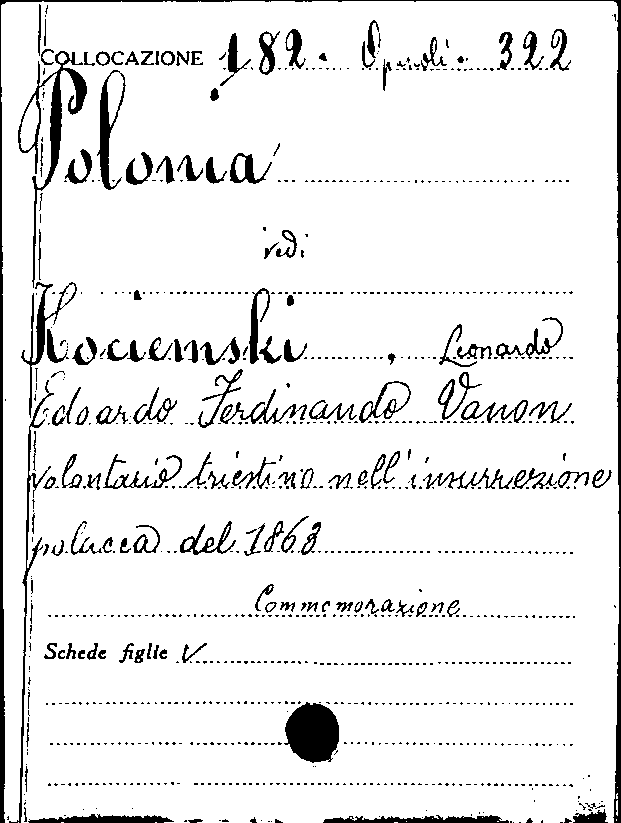 COLLOCAZIONE 182. Opusoli. 322
Polonia
vedi
Kociemski, Leonardo
Edoardo Ferdinando Vanon
volontario triestino nell'insurrezione
polacca del 1863
Commemorazione
Schede figlie V